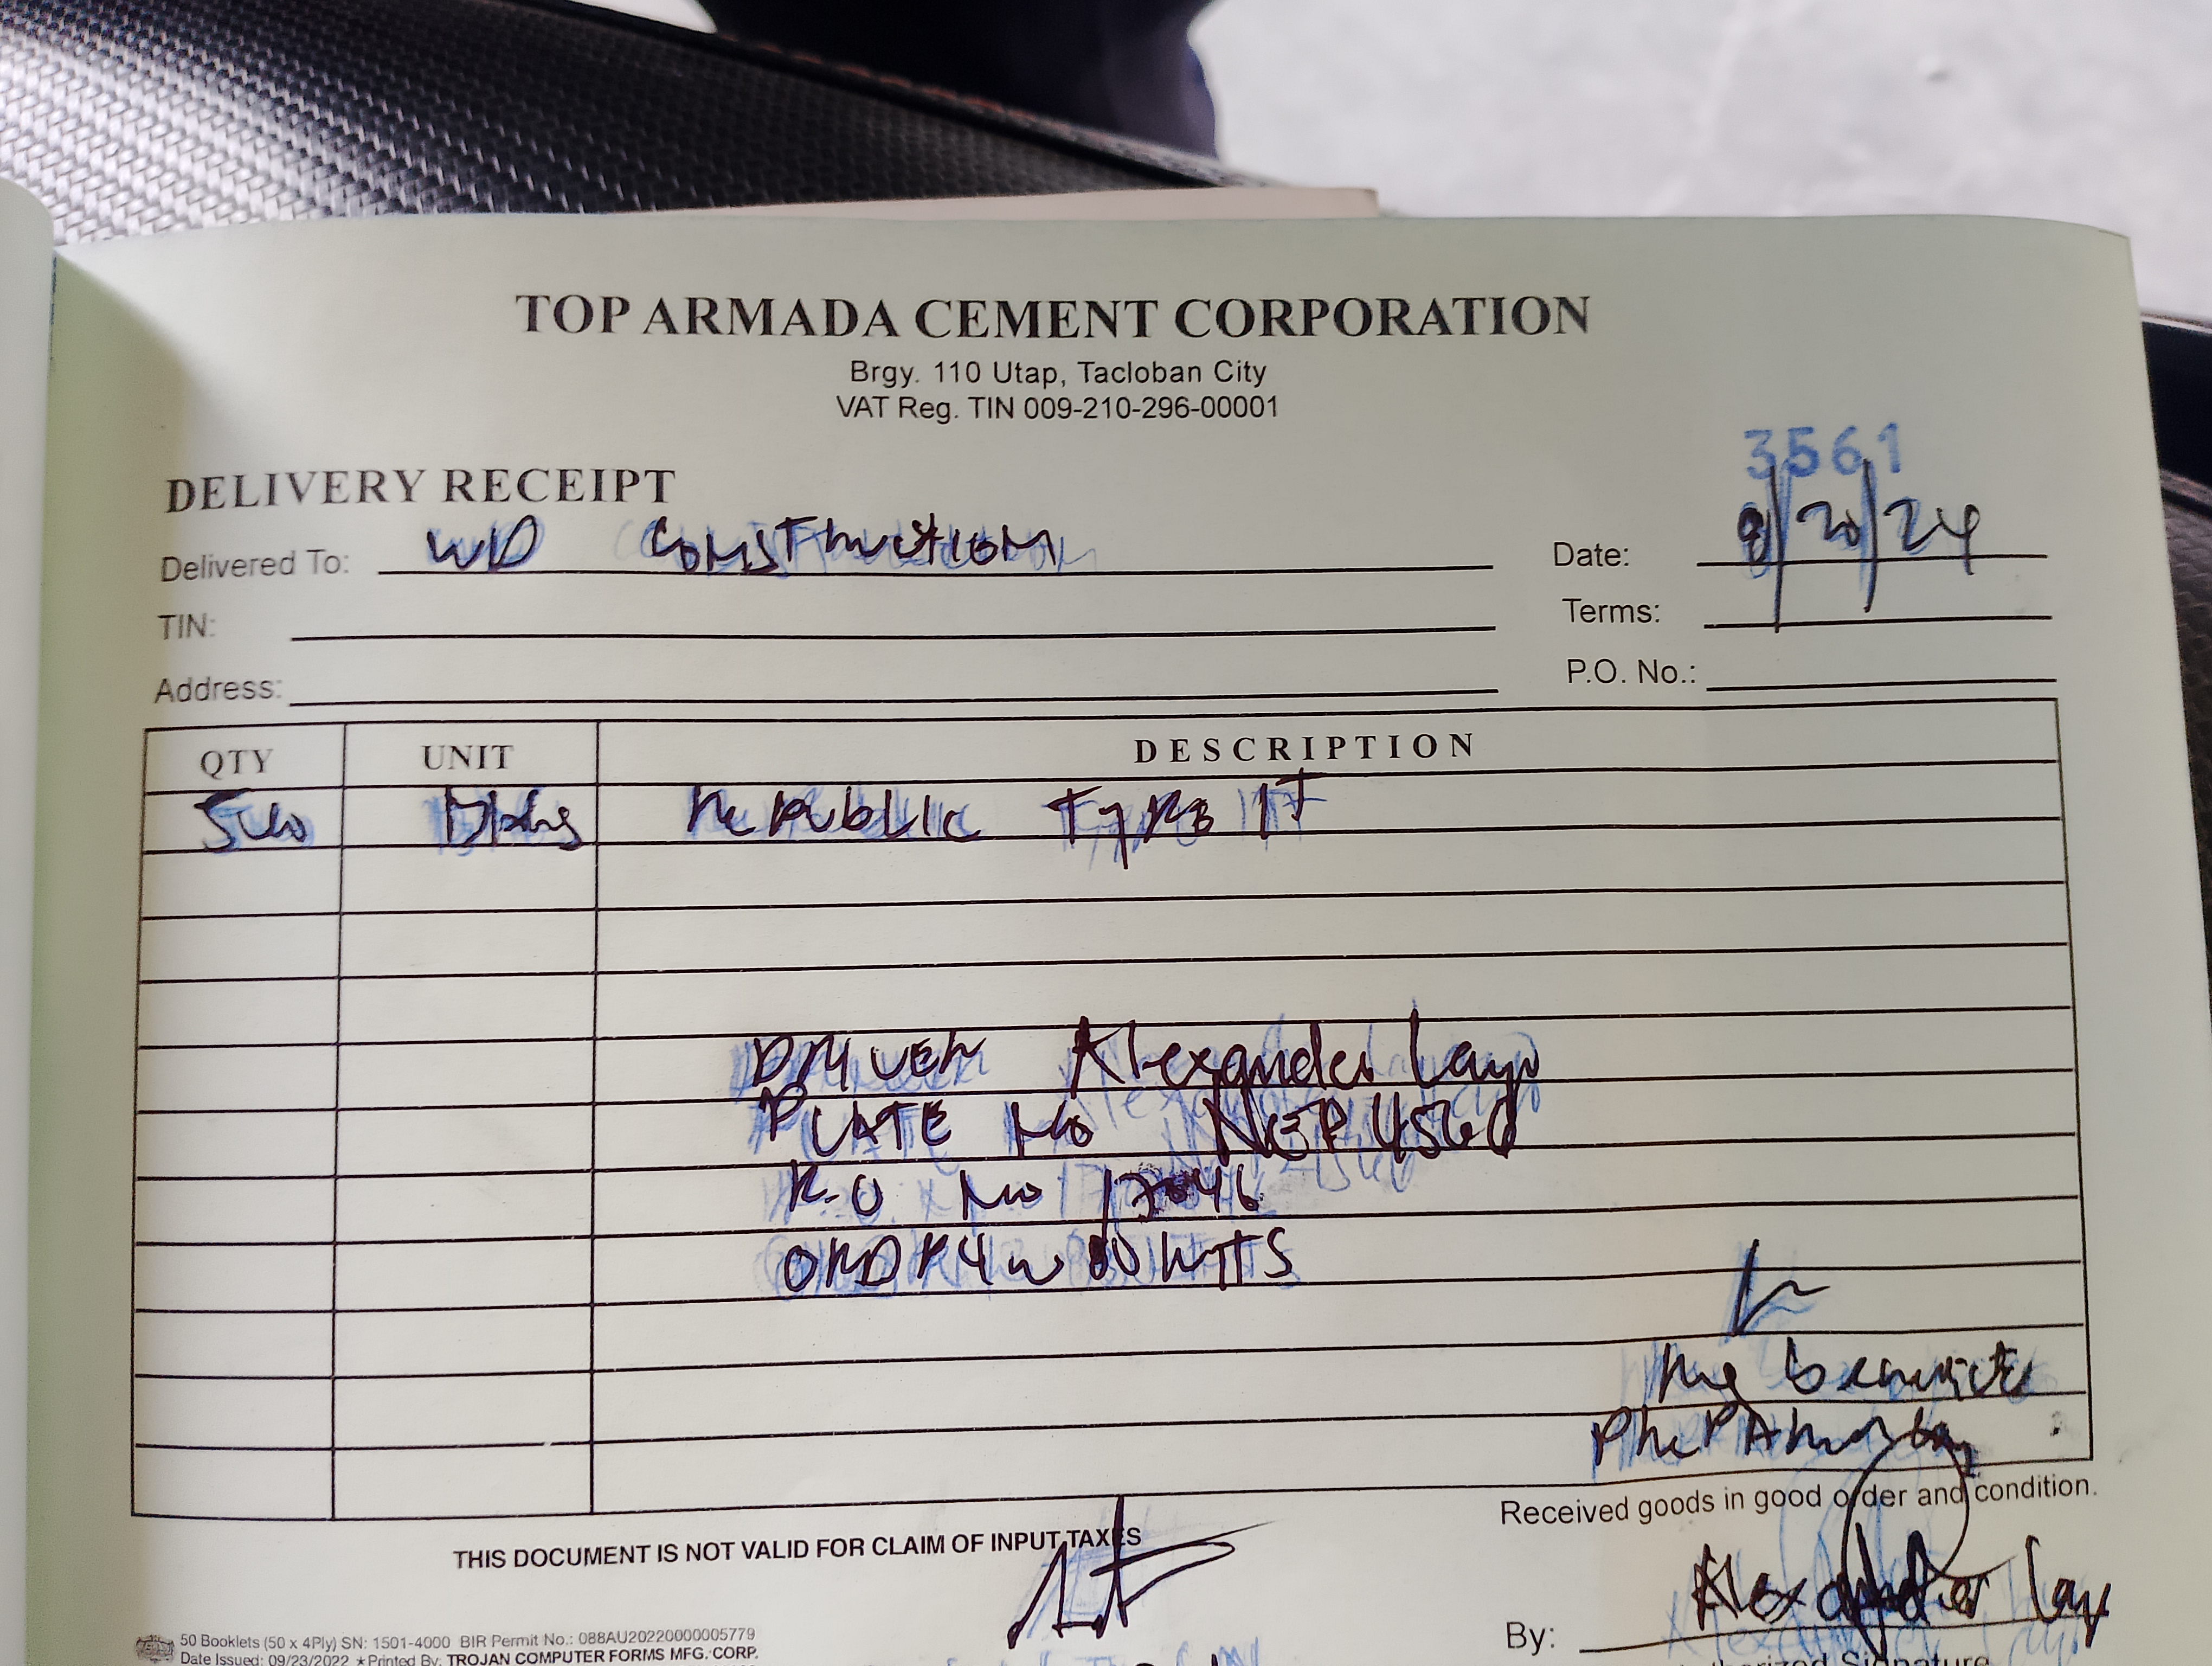 TOP ARMADA CEMENT CORPORATION
Brgy. 110 Utap, Tacloban City
VAT Reg. TIN 009-210-296-00001
3561
DELIVERY RECEIPT
Delivered To: WD Construction
Date: 8/20/24
TIN:
Terms:
Address:
P.O. No.:
QTY UNIT DESCRIPTION
500 Bags Republic Type 1T
Driver Alexander Layo
PLATE No NEP 4560
R.O No
Received goods in good order and condition.
THIS DOCUMENT IS NOT VALID FOR CLAIM OF INPUT TAXES
Alexander Layo
By:
50 Booklets (50 x 4Ply) SN: 1501-4000 BIR Permit No.: 088AU20220000005779
Date Issued: 09/23/2022 ★Printed By: TROJAN COMPUTER FORMS MFG. CORP.